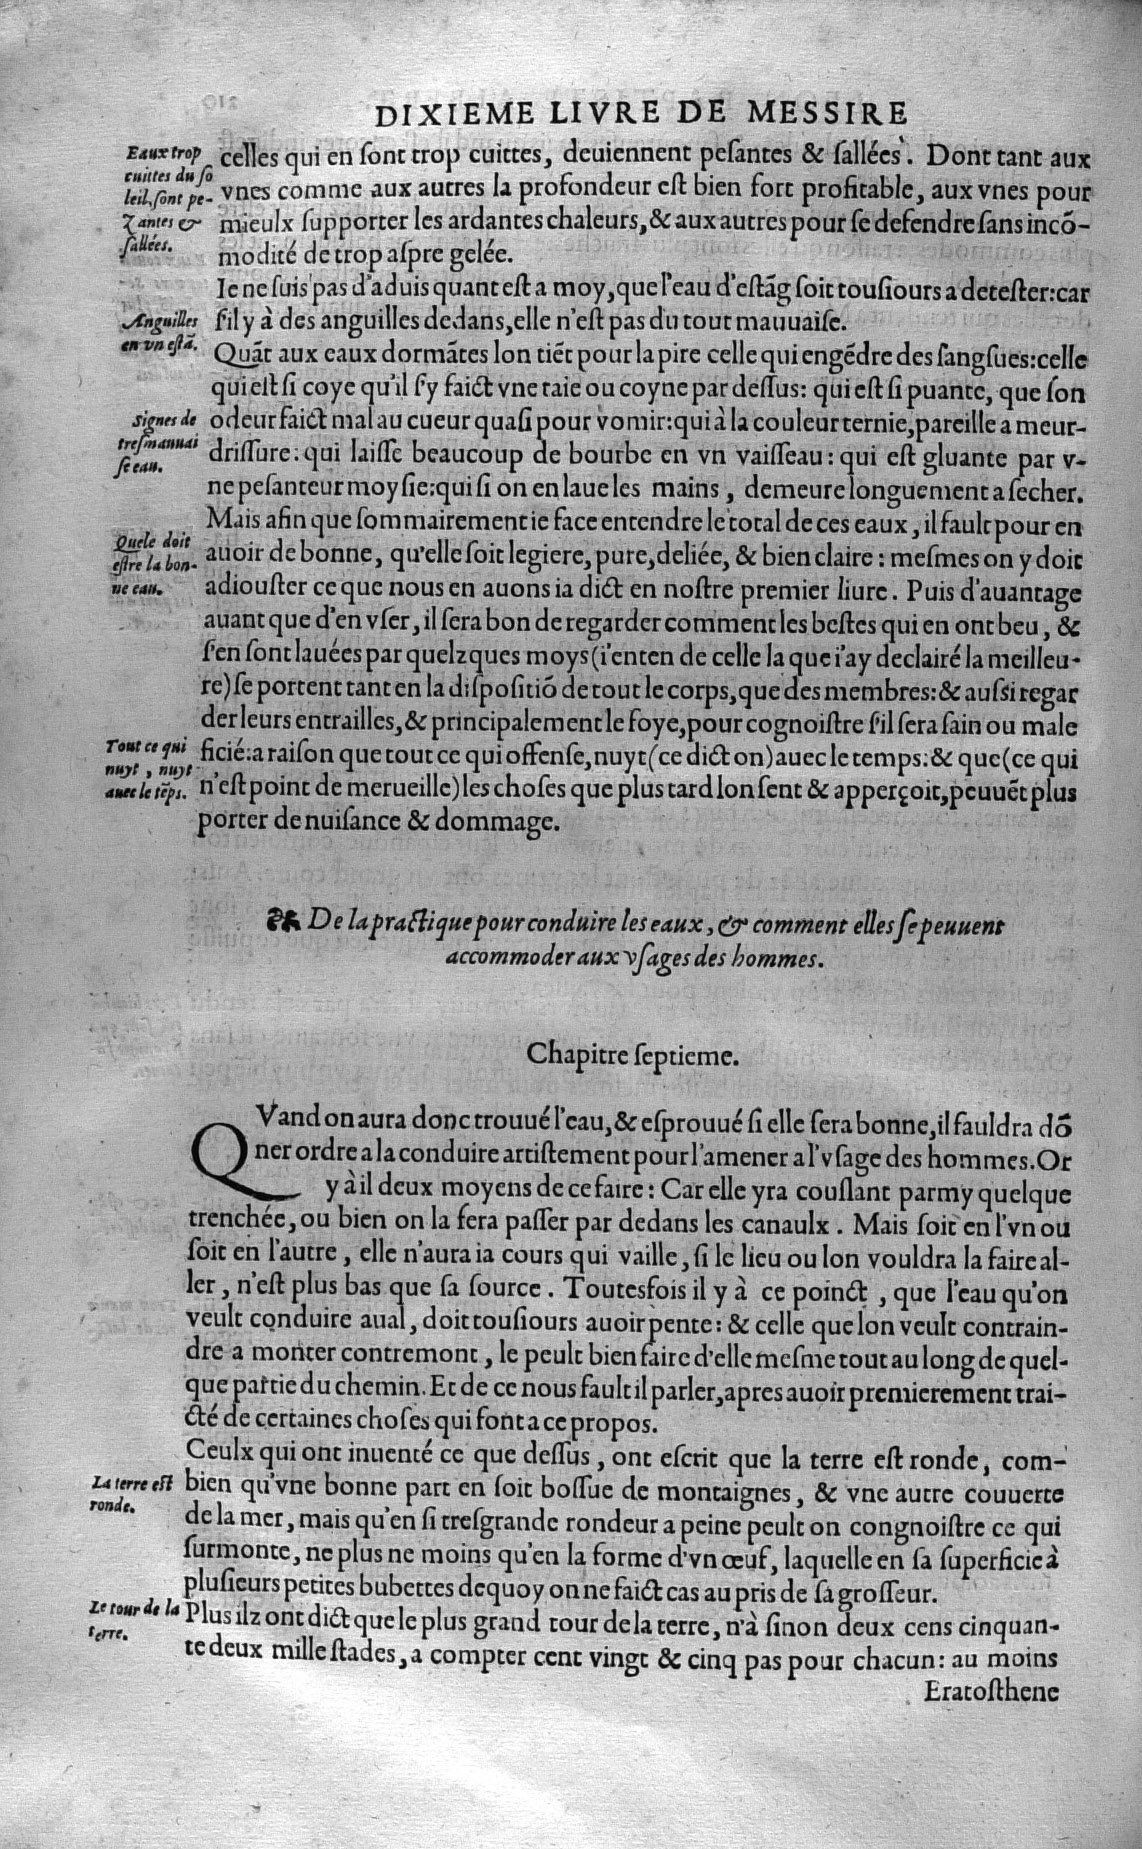 DIXIEME LIVRE DE MESSIRE
Eaux trop
cuittes du so
leil, sont pe-
zantes &
sallées.
celles qui en ſont trop cuittes, deuiennent peſantes & ſallées. Dont tant aux
vnes comme aux autres la profondeur eſt bien fort profitable, aux vnes pour
mieulx ſupporter les ardantes chaleurs, & aux autres pour ſe defendre ſans incõ-
modité de trop aſpre gelée.
Ie ne ſuis pas d'aduis quant eſt a moy, que l'eau d'eſtãg ſoit touſiours a deteſter: car
Anguilles
en vn eſtã.
ſ'il y à des anguilles dedans, elle n'eſt pas du tout mauuaiſe.
Quãt aux eaux dormãtes lon tiẽt pour la pire celle qui engẽdre des ſangſues: celle
qui eſt ſi coye qu'il ſ'y faict vne taie ou coyne par deſſus: qui eſt ſi puante, que ſon
Signes de
treſmauuai
ſe eau.
odeur faict mal au cueur quaſi pour vomir: qui à la couleur ternie, pareille a meur-
driſſure: qui laiſſe beaucoup de bourbe en vn vaiſſeau: qui eſt gluante par v-
ne peſanteur moyſie: qui ſi on en laue les mains, demeure longuement a ſecher.
Mais afin que ſommairement ie face entendre le total de ces eaux, il fault pour en
Quele doit
eſtre la bon-
ne eau.
auoir de bonne, qu'elle ſoit legiere, pure, deliée, & bien claire: meſmes on y doit
adiouſter ce que nous en auons ia dict en noſtre premier liure. Puis d'auantage
auant que d'en vſer, il ſera bon de regarder comment les beſtes qui en ont beu, &
ſ'en ſont lauées par quelzques moys (i'enten de celle la que i'ay declairé la meilleu-
re) ſe portent tant en la diſpoſitiõ de tout le corps, que des membres: & auſsi regar
der leurs entrailles, & principalement le foye, pour cognoiſtre ſ'il ſera ſain ou male
Tout ce qui
nuyt, nuyt
auec le tẽps.
ficié: a raiſon que tout ce qui offenſe, nuyt (ce dict on) auec le temps: & que (ce qui
n'eſt point de merueille) les choſes que plus tard lon ſent & apperçoit, peuuẽt plus
porter de nuiſance & dommage.
De la practique pour conduire les eaux, & comment elles ſe peuuent
accommoder aux vſages des hommes.
Chapitre ſeptieme.
QVand on aura donc trouué l'eau, & eſprouué ſi elle ſera bonne, il fauldra dõ
ner ordre a la conduire artiſtement pour l'amener a l'vſage des hommes. Or
y à il deux moyens de ce faire: Car elle yra couſlant parmy quelque
trenchée, ou bien on la fera paſſer par dedans les canaulx. Mais ſoit en l'vn ou
ſoit en l'autre, elle n'aura ia cours qui vaille, ſi le lieu ou lon vouldra la faire al-
ler, n'eſt plus bas que ſa ſource. Toutesfois il y à ce poinct, que l'eau qu'on
veult conduire aual, doit touſiours auoir pente: & celle que lon veult contrain-
dre a monter contremont, le peult bien faire d'elle meſme tout au long de quel-
que partie du chemin. Et de ce nous fault il parler, apres auoir premierement trai-
cté de certaines choſes qui font a ce propos.
Ceulx qui ont inuenté ce que deſſus, ont eſcrit que la terre eſt ronde, com-
La terre est
ronde.
bien qu'vne bonne part en ſoit boſſue de montaignes, & vne autre couuerte
de la mer, mais qu'en ſi treſgrande rondeur a peine peult on congnoiſtre ce qui
ſurmonte, ne plus ne moins qu'en la forme d'vn œuf, laquelle en ſa ſuperficie à
pluſieurs petites bubettes dequoy on ne faict cas au pris de ſa groſſeur.
Le tour de la
terre.
Plus ilz ont dict que le plus grand tour de la terre, n'à ſinon deux cens cinquan-
te deux mille ſtades, a compter cent vingt & cinq pas pour chacun: au moins
Eratoſthene